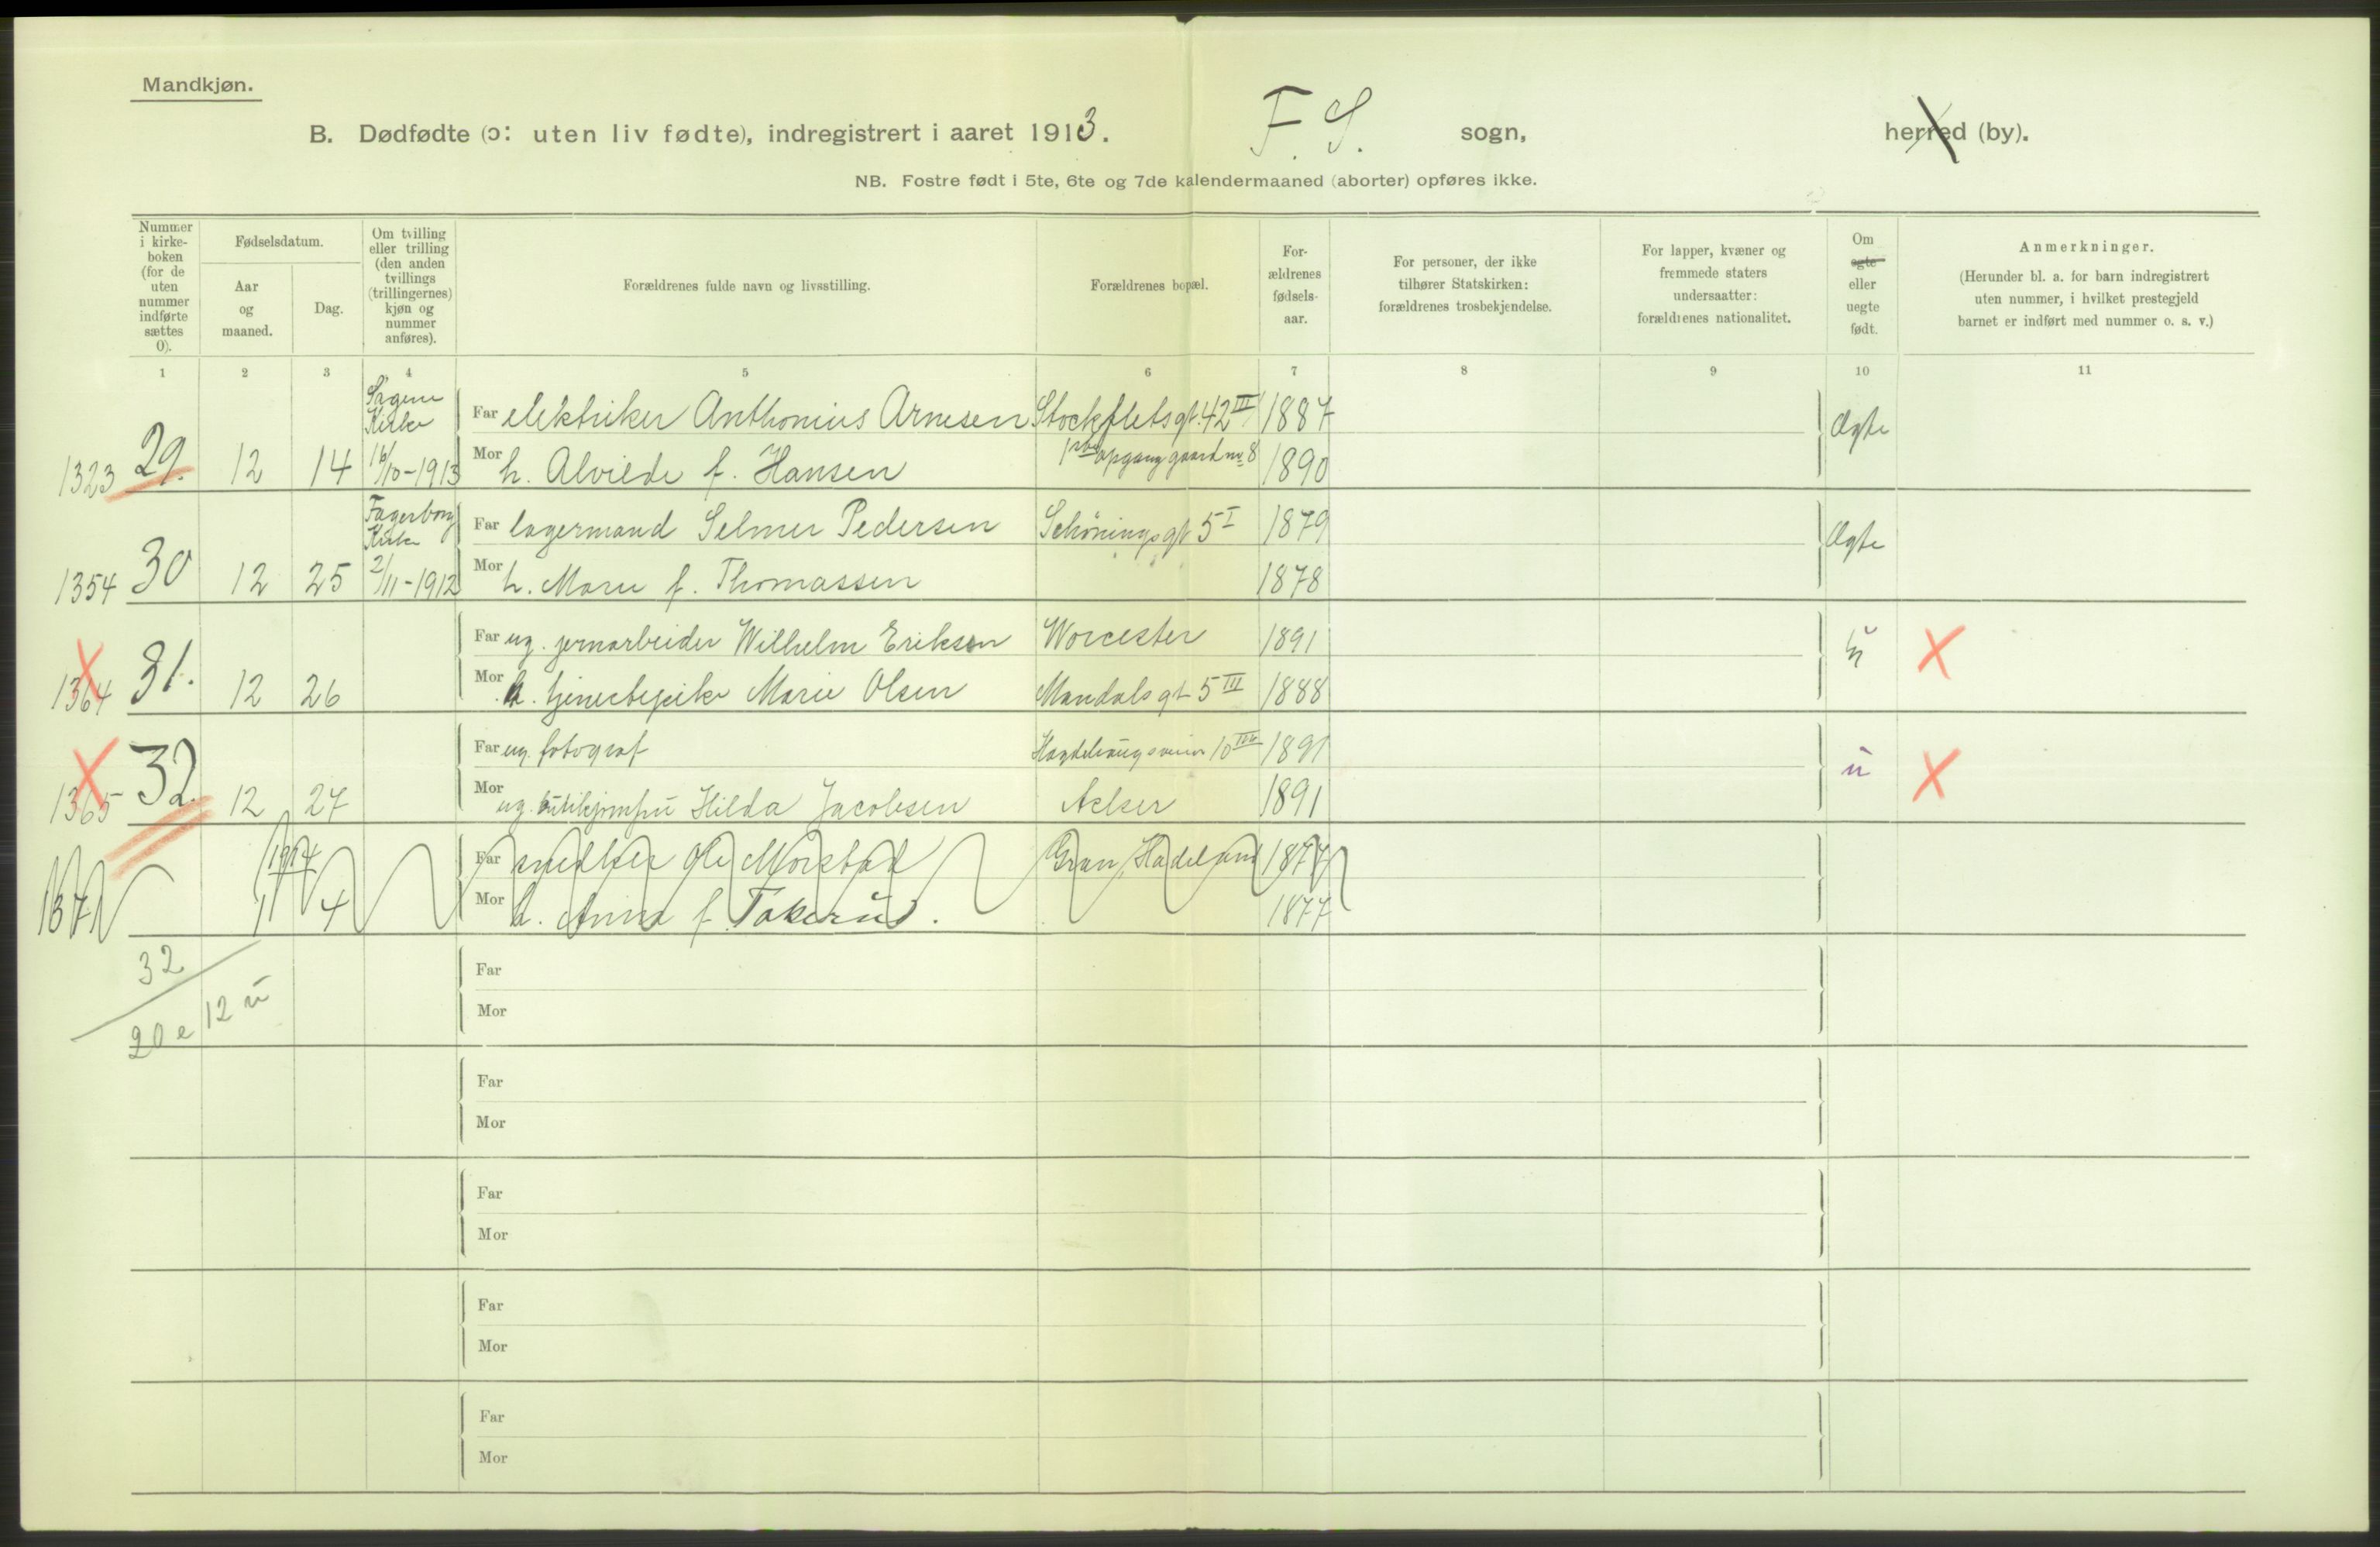 Mandkjøn.
B. Dødfødte (ɔ: uten liv fødte), indregistrert i aaret 1913. F. S. sogn, herred (by).
NB. Fostre født i 5te, 6te og 7de kalendermaaned (aborter) opføres ikke.
Nummer i kirkeboken (for de uten nummer indførte sættes 0).
Fødselsdatum.
Aar og maaned.
Dag.
Om tvilling eller trilling (den anden tvillings (trillingernes) kjøn og nummer anføres).
Forældrenes fulde navn og livsstilling.
Forældrenes bopæl.
Forældrenes fødselsaar.
For personer, der ikke tilhører Statskirken: forældrenes trosbekjendelse.
For lapper, kvæner og fremmede staters undersaatter: forældrenes nationalitet.
Om egte eller uegte født.
Anmerkninger.
(Herunder bl. a. for barn indregistrert uten nummer, i hvilket prestegjeld barnet er indført med nummer o. s. v.)
1 2 3 4 5 6 7 8 9 10 11
Sagene Kirke
Far elektriker Anthonius Arnesen Stockflets gt. 42 III 1887 Ægte
1323 29. 12 14 16/10-1913 Mor h. Alvilde f. Hansen opgang gaard no 8 1890
Fagerborg Kirke
Far lagermand Selmer Pedersen Schönings gt 5 I 1879 Ægte
1354 30 12 25 2/11-1912 Mor h. Marie f. Thomassen 1878
Far ug. jernarbeider Wilhelm Eriksen Worcester 1891 ü X
1364 31. 12 26 Mor tjenestepike Marie Olsen Mandals gt 5 III 1888
Far ug. fotograf 10 1891 ü X
1365 32. 12 27 Mor ug. butikjomfru Hilda Jacobsen Aker 1891
1914
Far snedker Ole Morstad Gran, Hadeland 1877
1371 1 4 Mor h. Anna f. Tokerud. 1877
32
20 e 12 u
Far
Mor
Far
Mor
Far
Mor
Far
Mor
Far
Mor